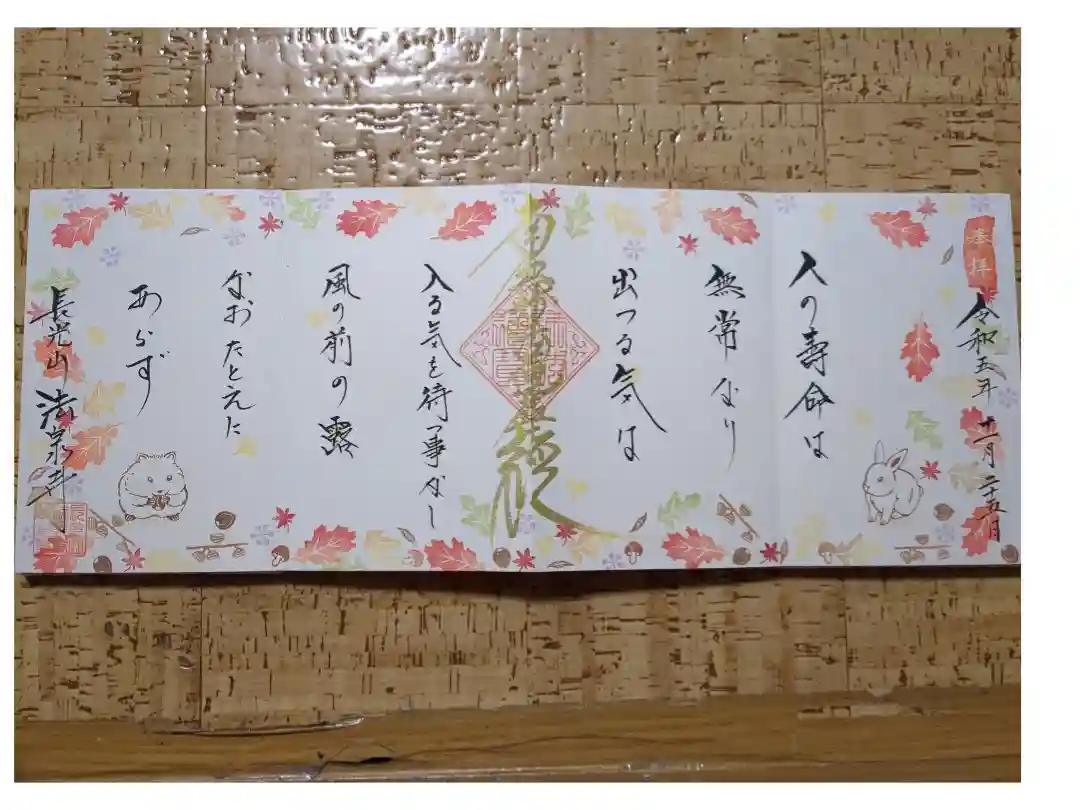 奉拝
令和五年 十一月 二十五日
人の寿命は
無常なり
出つる気は
南無妙法蓮華経
入る気を待つ事なし
風の前の露
なおたとえに
あらず
長光山 法泉寺